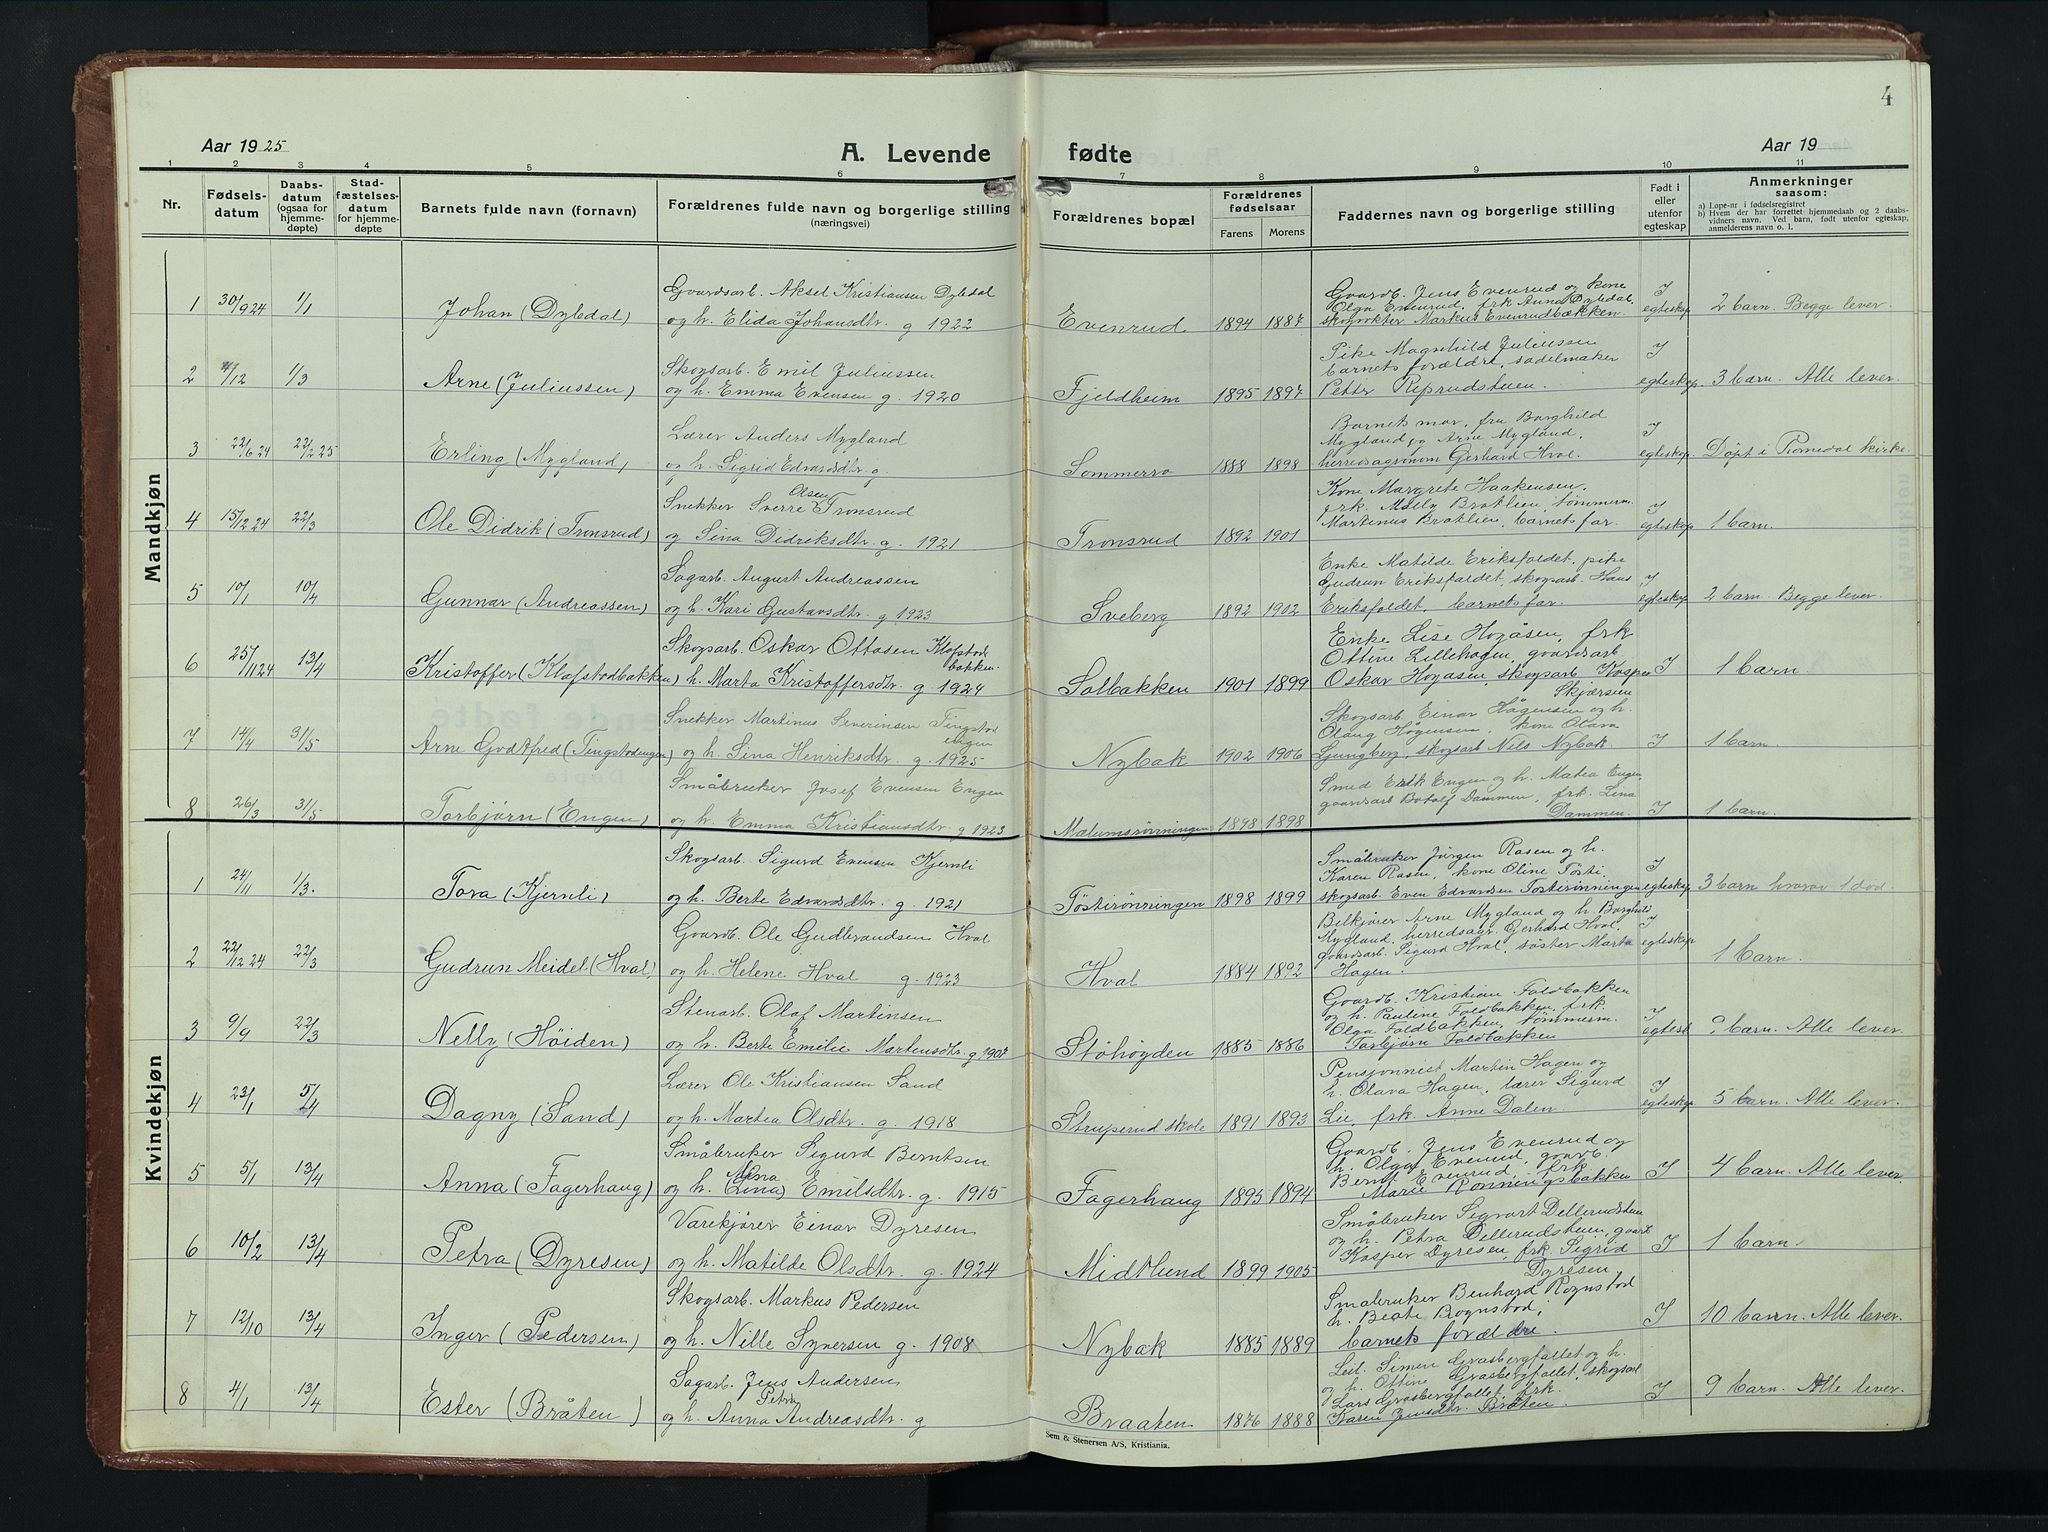 4
Aar 1925
A. Levende fødte
Aar 19
1 2 3 4 5 6 7 8 9 10 11
Nr.
Fødselsdatum
Daabsdatum (ogsaa for hjemmedøpte)
Stadfæstelsesdatum for hjemmedøpte
Barnets fulde navn (fornavn)
Forældrenes fulde navn og borgerlige stilling (næringsvei)
Forældrenes bopæl
Forældrenes fødselsaar
Farens Morens
Faddernes navn og borgerlige stilling
Født i eller utenfor egteskap
Anmerkninger saasom:
a) Løpe-nr i fødselsregistret
b) Hvem der har forrettet hjemmedaab og 2 daabsvidners navn. Ved barn, født utenfor egteskap, anmelderens navn o. l.
Mandkjøn
1 30/9 24 1/1 Johan (Dybdal)
Gaardsarb. Aksel Kristiansen Dybdal
og h. Elida Johansdtr. g 1922
Evenrud 1894 1887
Gaardb. Jens Evenrud og kone
Olga Evenrud, frk Anna Dybdal,
skogvokter Markus Evenrudbækken.
I egteskap 2 barn. Begge lever.
2 /12 1/3 Arne (Juliussen)
Skogsarb. Emil Juliussen
og h. Emma Evensen g. 1920
Fjeldheim 1895 1897
Pike Magnhild Juliussen
barnets forældre, sadelmaker
Petter Reprudstuen.
I egteskap. 3 barn. Alle lever.
3 22/6 24 22/2 25 Erling (Mygland)
Lærer Anders Mygland
og h. Sigrid Edvardsdtr. g.
Sommerro 1888 1898
Barnets mor, fru Borghild
Mygland, og Arne Mygland,
herredsagronom Gerhard Hval.
I egteskap. Døpt i Romedal kirke.
4 15/12 24 22/3 Ole Didrik (Tronsrud)
Snekker Sverre Olsen Tronsrud
og Sina Didriksdtr. g. 1921
Tronsrud 1892 1901
Kone Margrete Haakensen,
frk. Mally Bratlien, tømmerm.
Martinus Bratlien, barnets far.
I egteskap 1 barn.
5 10/1 10/4 Gunnar (Andreassen)
Sagarb. August Andreassen
og h. Kari Gustavsdtr. g 1923
Sveberg 1892 1902
Enke Matilde Eriksfaldet, pike
Gudrun Eriksfaldet, skogsarb. Hans
Eriksfaldet, barnets far.
I egteskap 2 barn. Begge lever.
6 25/11 24 13/4 Kristoffer (Klafstadbakken)
Skogsarb. Oskar Ottosen Klafstadbakken.
h. Marta Kristoffersdtr. g 1924
Solbakken 1901 1899
Enke Lise Hogåsen, frk
Ottine Lillehagen, gaardsarb.
Oskar Hogåsen, skogsarb Kasper
Skjærsien
I 1 barn
7 14/4 31/5 Arne Godtfred (Tingstadengen)
Snekker Martinus Severinsen Tingstadengen
og h. Sina Henriksdtr. g. 1925.
Nybak 1902 1906
Skogsarb. Einar Hågensen og h.
Olaug Hågensen, kone Olava
Ljungberg, skogsarb Nils Nybak.
I 1 barn.
8 26/3 31/5 Torbjørn (Engen)
Småbruker Josef Evensen Engen
og h. Emma Kristiansdtr. g 1923
Malumsrønningen 1898 1898
Smed Erik Engen og h. Matea Engen,
gaardsarb Botolf Dammen, frk. Lina
Dammen.
I 1 barn.
Kvindekjøn
1 24/11 1/3. Tora (Kjernli)
Skogsarb. Sigurd Evensen Kjernli
og h. Berte Edvardsdtr. g. 1921
Tøstirønningen 1898 1899
Småbruker Jørgen Rasen og h.
Karen Rasen, kone Oline Tøsti,
skogsarb. Even Edvardsen Tøstirønningen
I egteskap 3 barn hvorav 1 død.
2 22/12 24 22/3 Gudrun Meidel (Hval)
Gaardb. Ole Gudbrandsen Hval
og h. Helene Hval g. 1923
Hval 1884 1892
Bilkjører Arne Mygland og h. Borghild
Mygland, herredsagr. Gerhard Hval,
gaardsarb. Sigurd Hval, søster Marta
Hagen.
I egteskap 1 barn.
3 9/9 22/3 Nelly (Høiden)
Stenarb. Olaf Martinsen
og h. Berte Emilie Martensdtr. g 1907
Støhøgden 1885 1886
Gaardb. Kristian Foldbakken
og h. Pauline Foldbakken, frk.
Olga Foldbakken, tømmerm.
Torbjørn Foldbakken
I egtesk barn. Alle lever.
4 23/1 5/4 Dagny (Sand)
Lærer Ole Kristiansen Sand
og h. Martea Olsdtr. g. 1918
Struperud skole 1891 1893
Pensjonnist Martin Hagen og
h. Olava Hagen, lærer Sigurd
Lie, frk. Anne Dalen
I egteskap 5 barn. Alle lever.
5 5/1 13/4 Anna (Fagerhaug)
Småbruker Sigurd Berntsen
og h. Alna (Lina) Emilsdtr. g. 1915
Fagerhaug 1895 1894
Gaardb. Jens Evenrud og
h. Olga Evenrud, gaardb.
Bernt Evenrud, frk.
Marie Rønningsbakken
I 4 barn. Alle lever.
6 10/2 13/4 Petra (Dyresen)
Varekjører Einar Dyresen
og h. Matilde Olsdtr. g. 1924
Midtlund 1899 1905
Småbruker Sigvart Dellerudstuen
og h. Petra Dellerudstuen, gaarb
Kasper Dyresen, frk. Sigrid
Dyresen
I 1 barn.
7 12/10 13/4 Inger (Pedersen)
Skogsarb. Markus Pedersen
og h. Nille Syversen g. 1908
Nybak 1885 1889
Småbruker Benhard Rognstad
h. Beate Rognstad,
barnets forældre.
I 10 barn. Alle lever.
8 4/1 13/4 Ester (Bråten)
Sagarb. Jens Andersen
og h. Anna Petra Andreasdtr. g
Braaten 1876 1888
Leil. Simen Grasbergfallet og h.
og h. Ottine Grasbergfallet, skogsarb
Lars Grasbergfallet, frk.
Karen Jensdtr. Bråten.
I 9 barn. Alle lever.
Sem & Stenersen A/S, Kristiania.